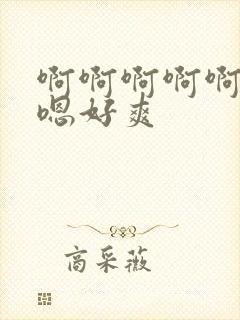 啊啊啊啊啊
嗯好爽
商采薇